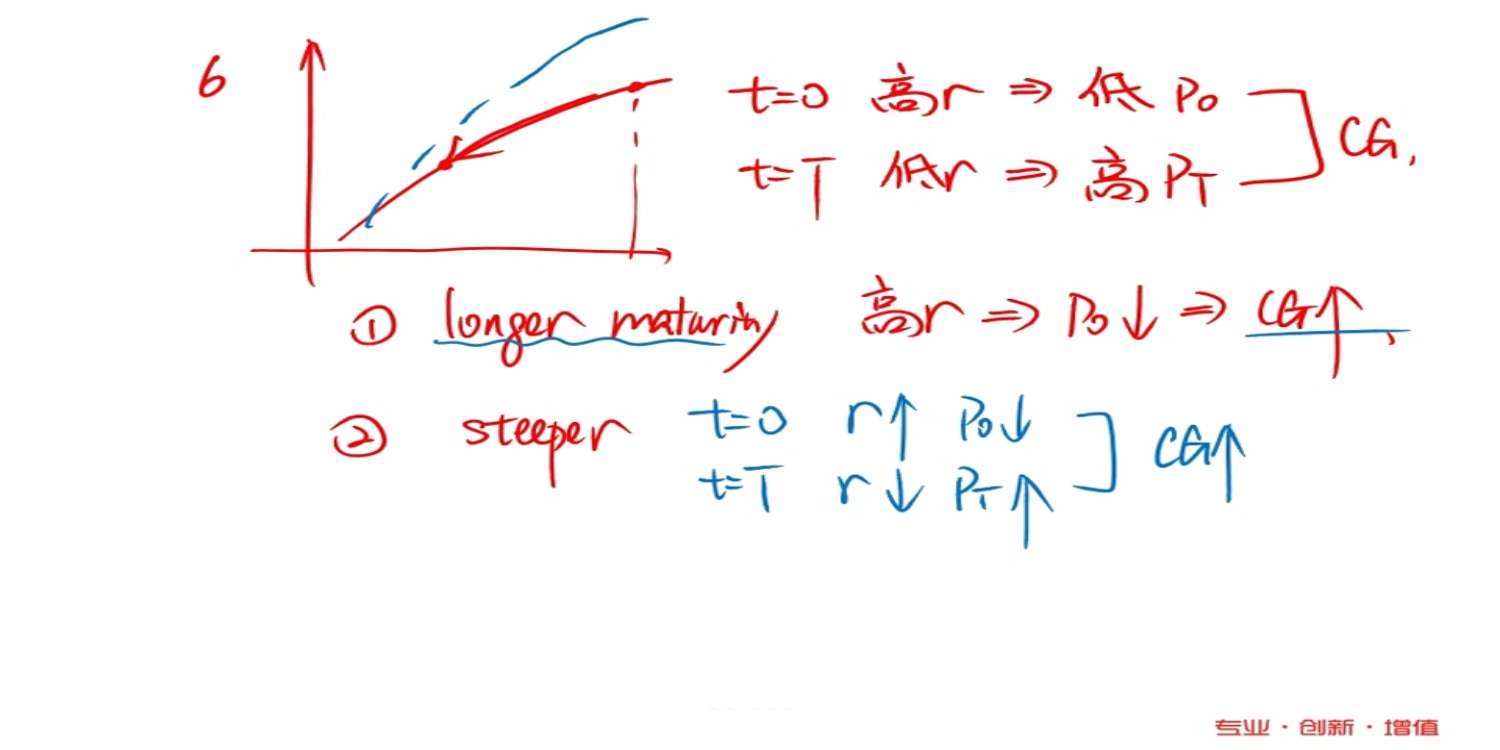 6
t=0 高r ⇒ 低 P₀
t=T 低r ⇒ 高 P_T
CG,
① longer maturity 高r ⇒ P₀↓ ⇒ CG↑
② steeper t=0 r↑ P₀↓
t=T r↓ P_T↑
CG↑
专业·创新·增值